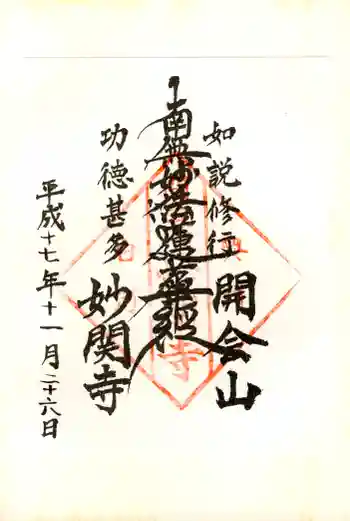 如説修行 開会山
南無妙法蓮華経
功徳甚多 妙関寺
平成十七年十一月二十六日
寺